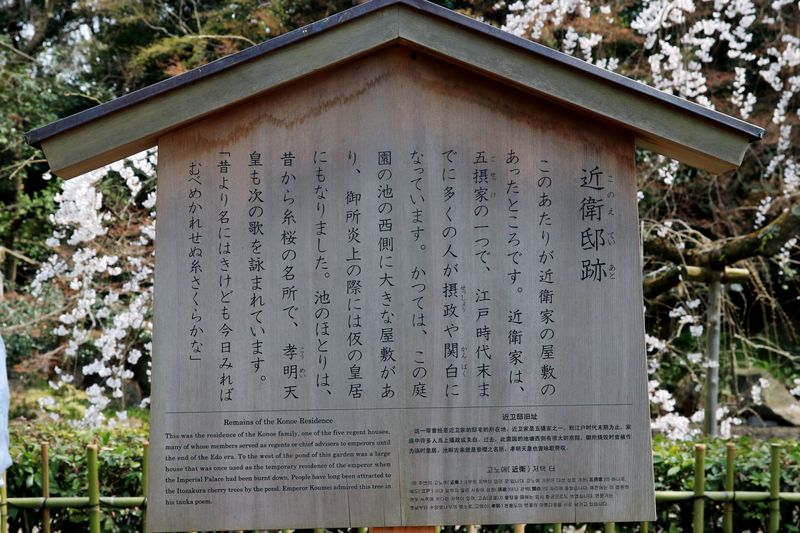 近衛邸跡
このえていあと
このあたりが近衛家の屋敷の
あったところです。近衛家は、
五摂家の一つで、江戸時代末ま
ごせっけ
でに多くの人が摂政や関白に
せっしょう かんぱく
なっています。かつては、この庭
園の池の西側に大きな屋敷があ
り、御所炎上の際には仮の皇居
にもなりました。池のほとりは、
昔から糸桜の名所で、孝明天
こうめい
皇も次の歌を詠まれています。
「昔より名にはきけども今日みれば
むべめかれせぬ糸さくらかな」
Remains of the Konoe Residence
This was the residence of the Konoe family, one of the five regent houses,
many of whose members served as regents or chief advisers to emperors until
the end of the Edo era. To the west of the pond of this garden was a large
house that was once used as the temporary residence of the emperor when
the Imperial Palace had been burnt down. People have long been attracted to
the Itozakura cherry trees by the pond. Emperor Koumei admired this tree in
his tanka poem.
近卫邸旧址
这一带曾经是近卫家的邸宅的所在地。近卫家是五摄家之一，到江户时代末期为止，家
族中许多人当上摄政或关白。过去，此庭园的池塘西侧有很大的房院，御所烧毁时曾被作
为临时皇居。池畔古来就是垂樱之名所，孝明天皇也曾咏歌赞叹。
고노에(近衛) 저택 터